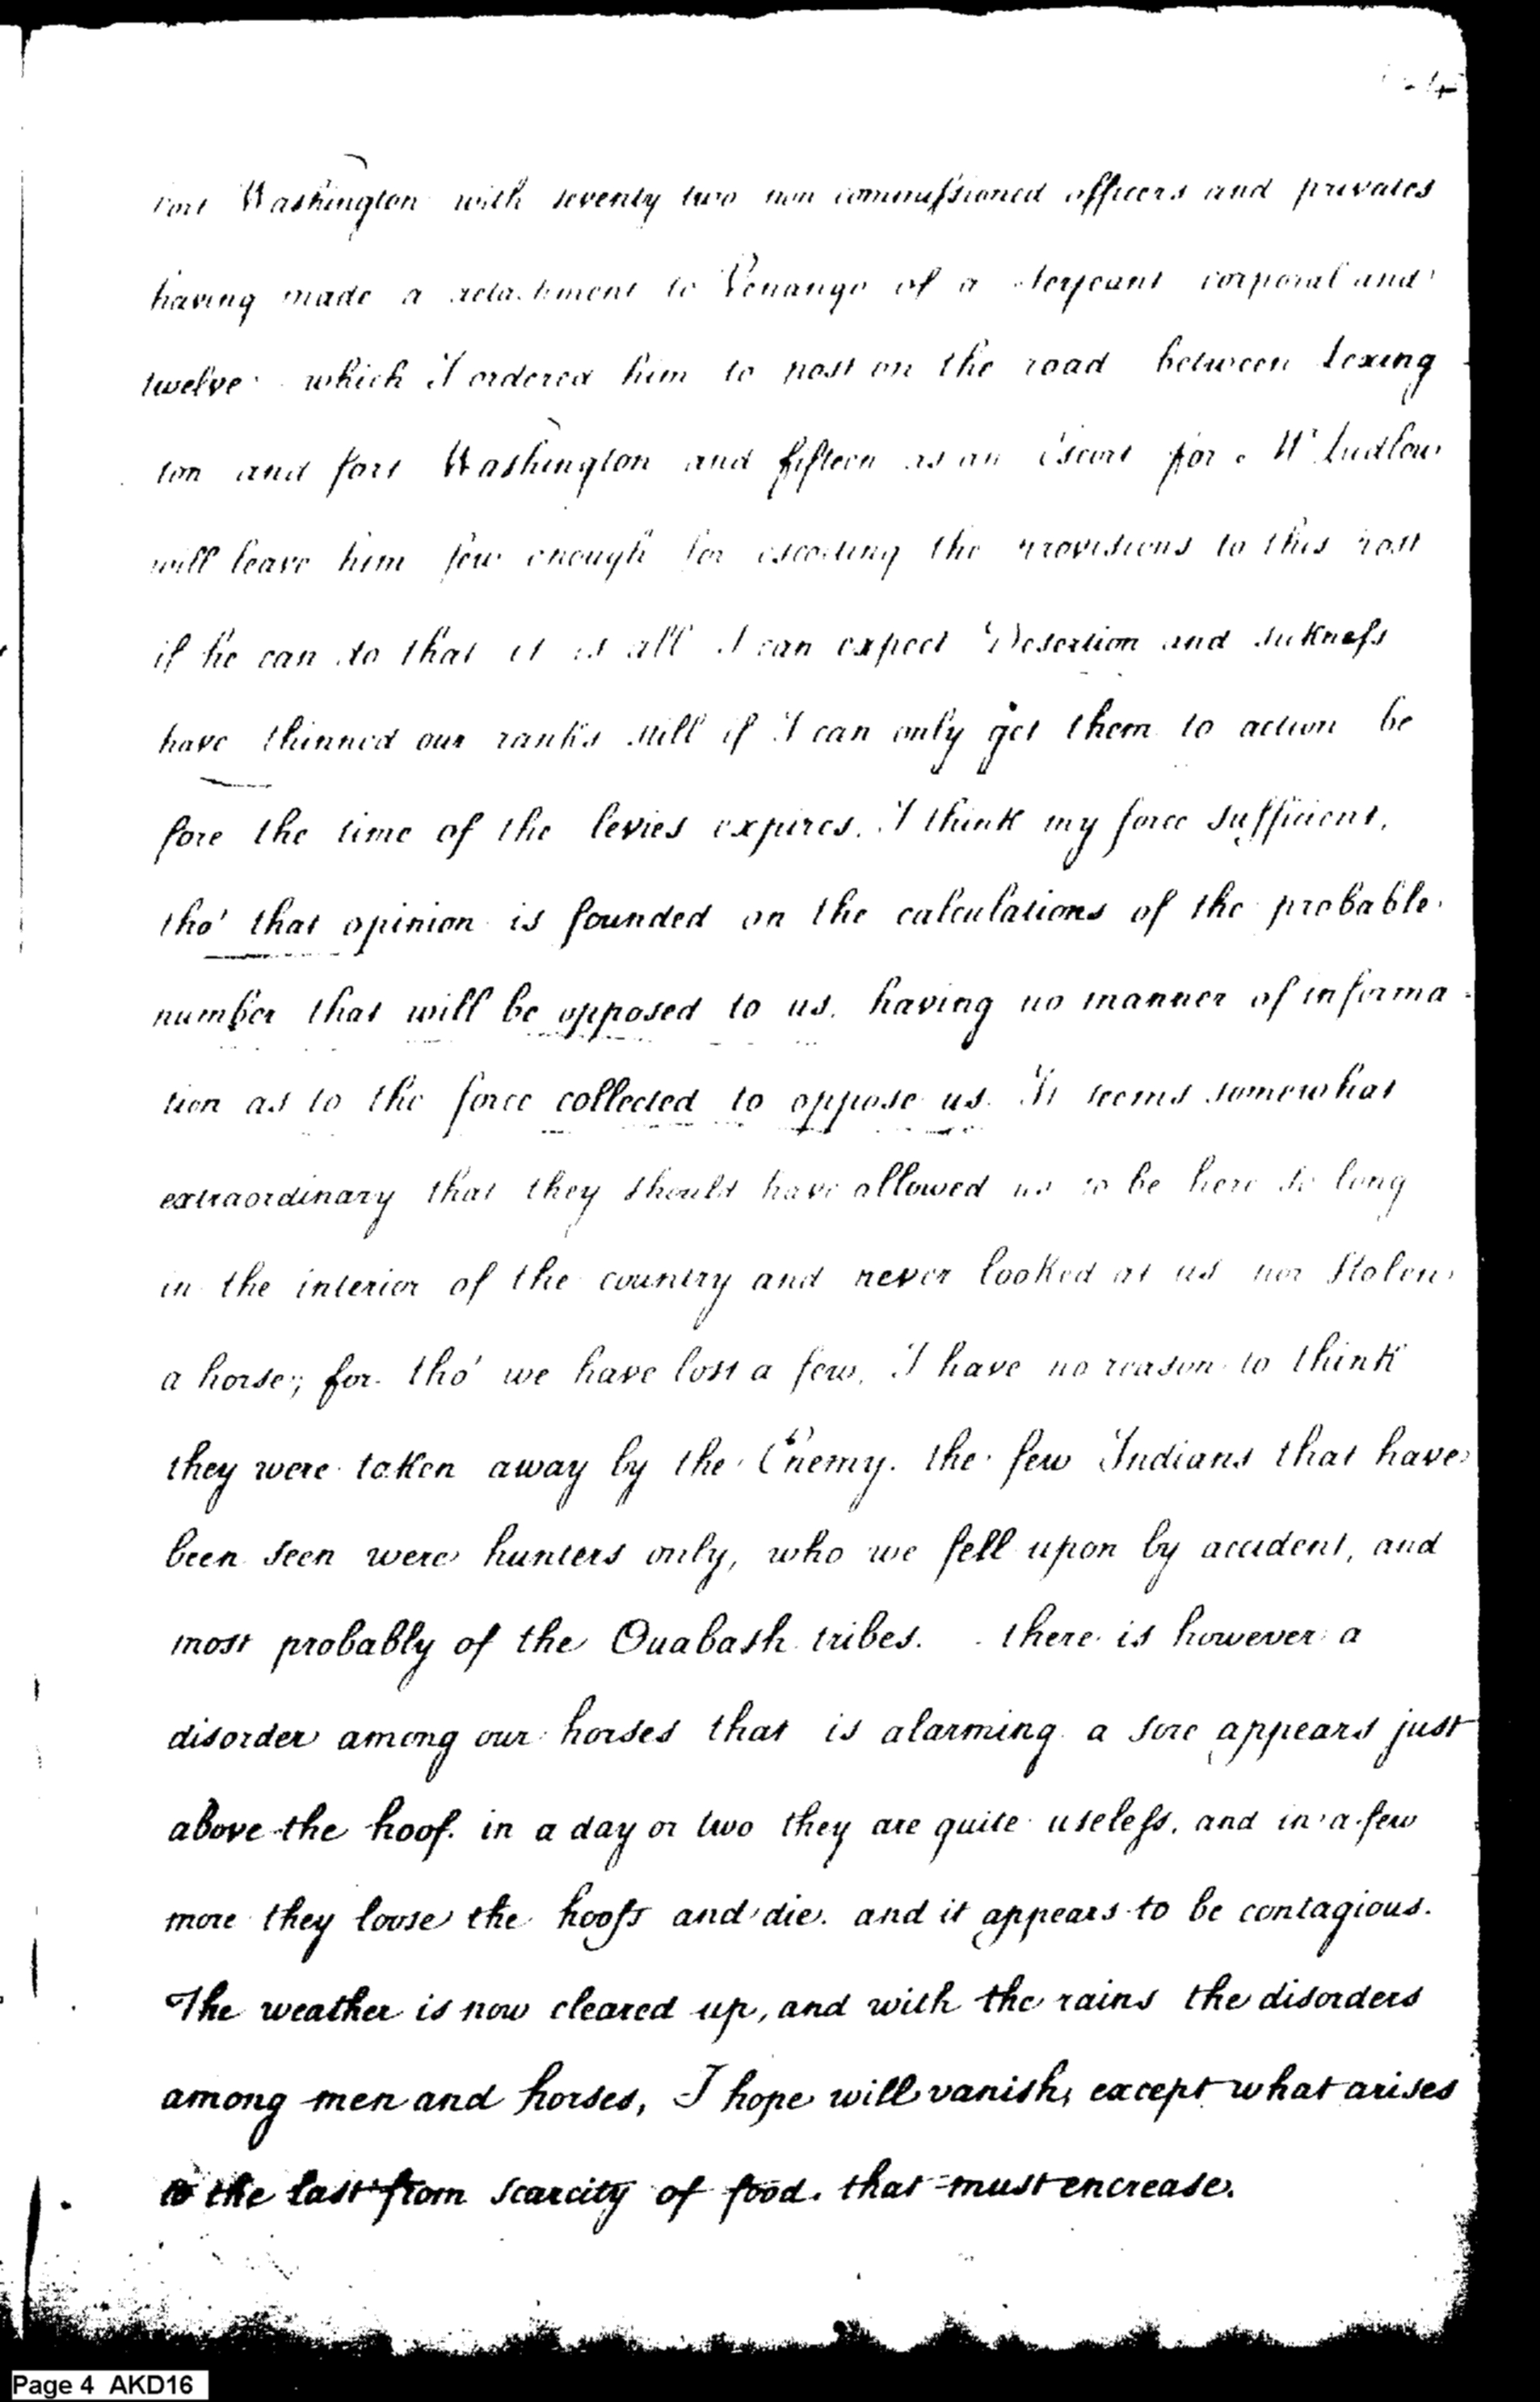 4
Fort Washington with seventy two non commissioned officers and privates
having made a detachment to Venango of a Serjeant corporal and
twelve which I ordered him to post on the road between Lexing
ton and fort Washington and fifteen as an Escort for Mr Ludlow
will leave him few enough for escorting the provisions to this post
if he can do that it is all I can expect Desertion and sickness
have thinned our ranks still if I can only get them to action be
fore the time of the levies expires. I think my force sufficient,
tho' that opinion is founded on the calculations of the probable
number that will be opposed to us. having no manner of informa-
tion as to the force collected to oppose us. It seems somewhat
extraordinary that they should have allowed us to be here so long
in the interior of the country and never looked at us nor Stolen
a horse; for tho' we have lost a few, I have no reason to think
they were taken away by the Enemy. the few Indians that have
been seen were hunters only, who we fell upon by accident, and
most probably of the Ouabash tribes. there is however a
disorder among our horses that is alarming a sore appears just
above the hoof. in a day or two they are quite useless, and in a few
more they loose the hoofs and die. and it appears to be contagious.
The weather is now cleared up, and with the rains the disorders
among men and horses, I hope will vanish, except what arises
to the last from scarcity of food. that must encrease.
Page 4 AKD16